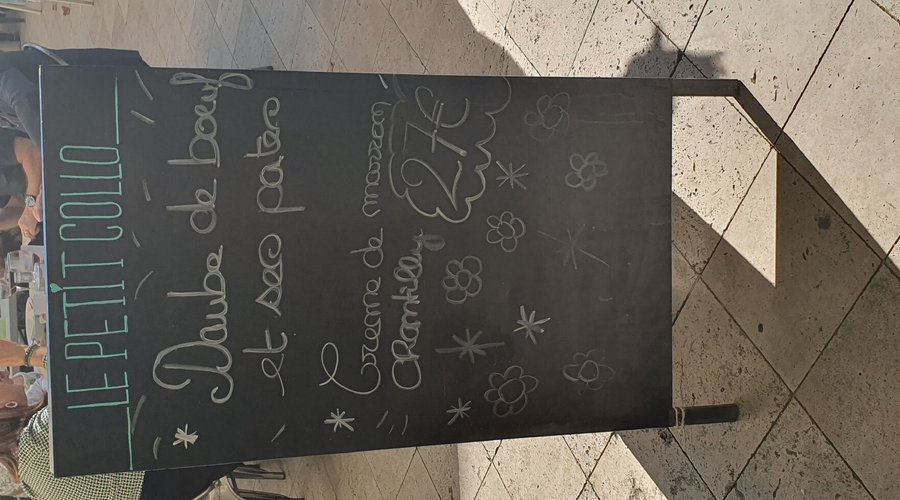 LE PETIT COLLO
Daube de boeuf
et ses pates
Creme de marron
Chantilly
27€